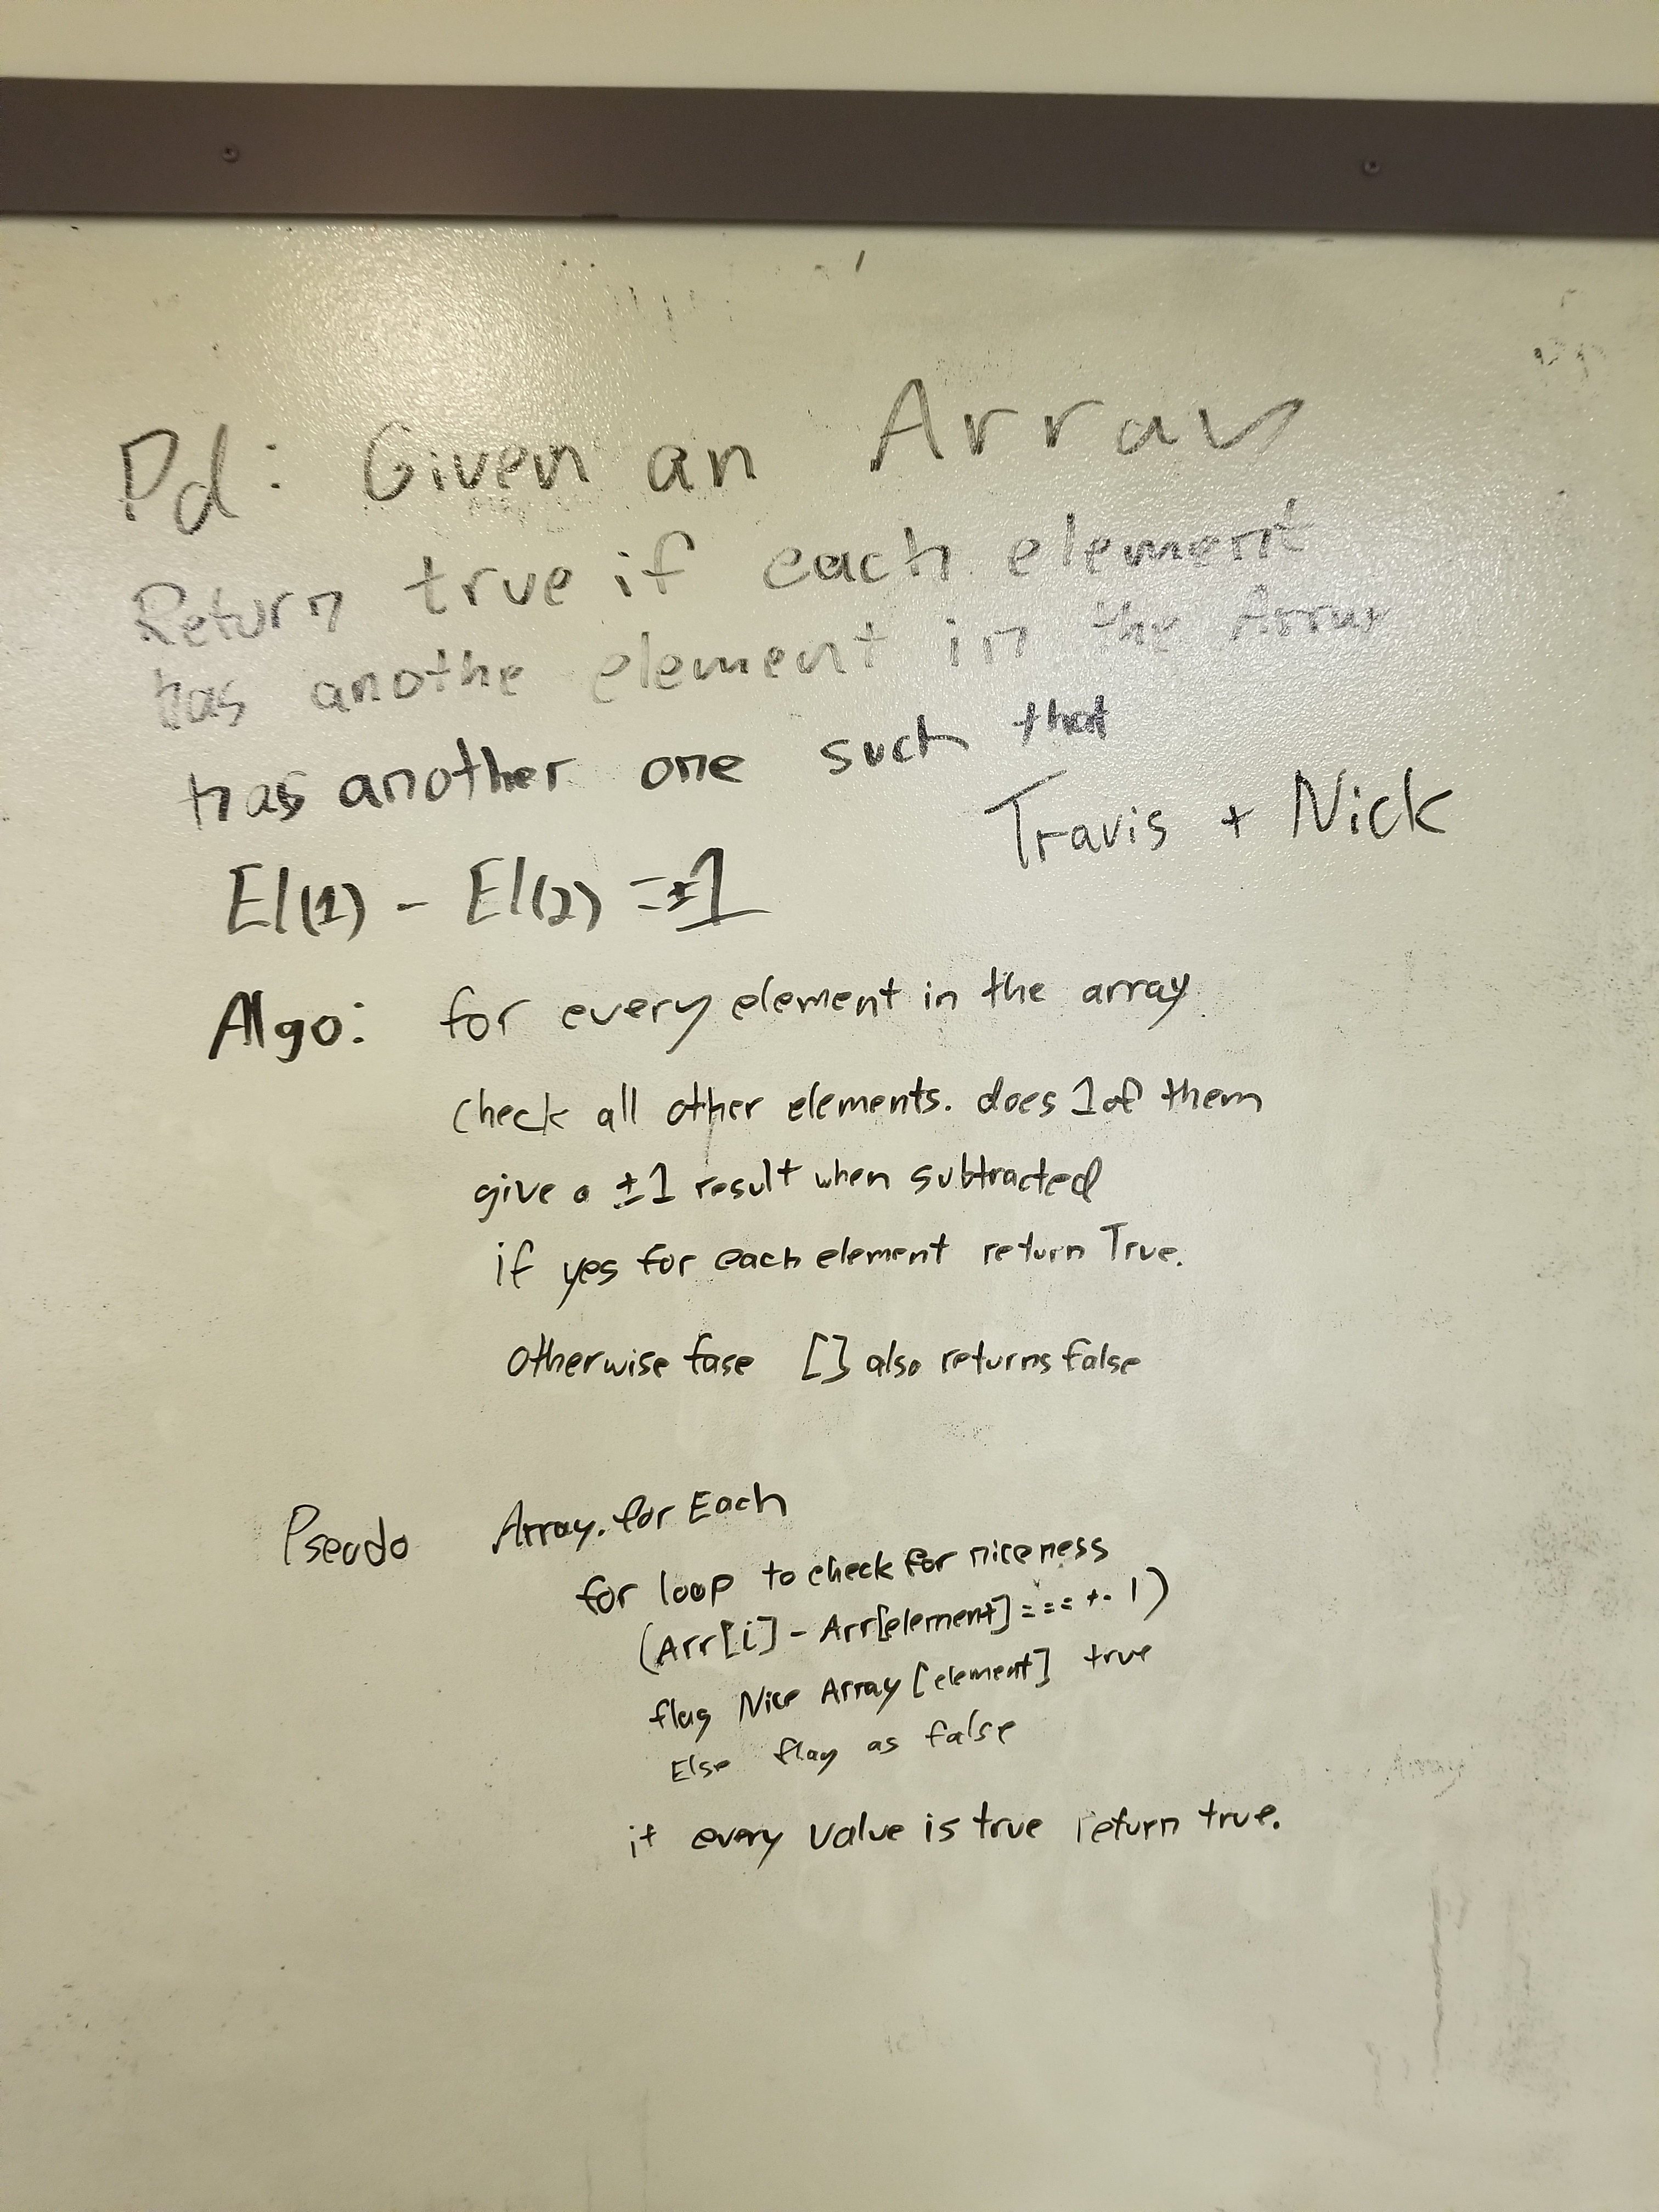 Pd: Given an Array
Return true if each element
has anothe element in the Array
has another one such that
Travis + Nick
El(1) - El(2) = ±1
Algo: for every element in the array
check all other elements. does 1 of them
give a ±1 result when subtracted
if yes for each element return True.
otherwise fase [] also returns false
Pseudo Array.for Each
for loop to check for niceness
(Arr[i] - Arr[element] === +- 1)
flag Nice Array [element] true
Else flag as false
if every value is true return true.
Array